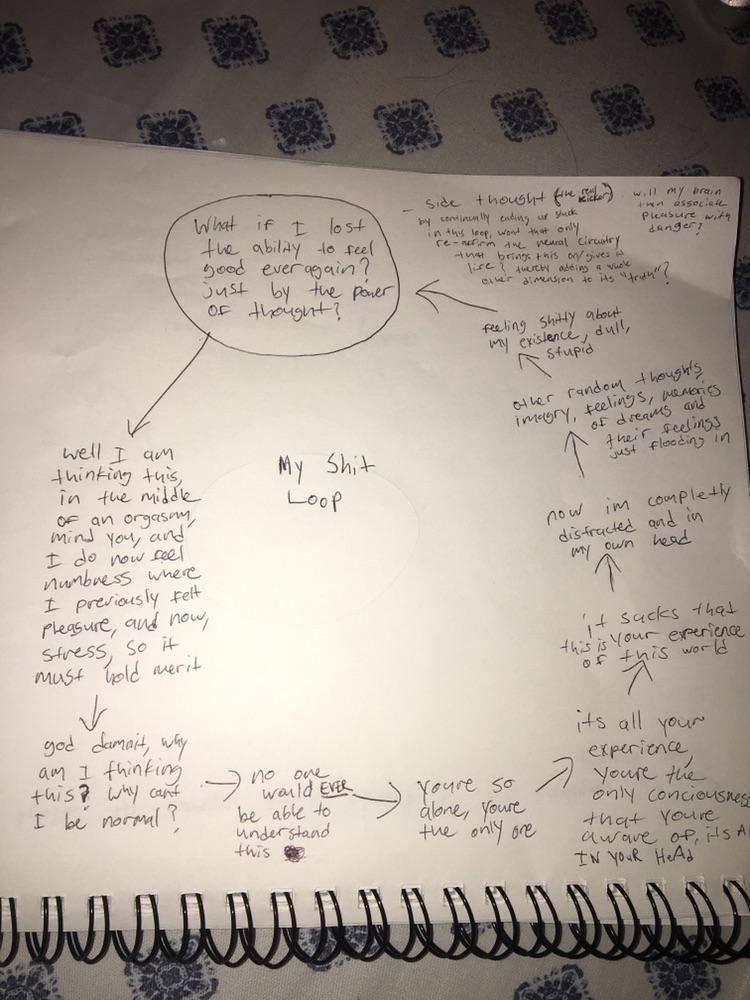 What if I lost
the ability to feel
good ever again?
just by the power
of thought?
well I am
thinking this,
in the middle
of an orgasm,
mind you, and
I do now feel
numbness where
I previously felt
pleasure, and now,
stress, so it
must hold merit
god damnit, why
am I thinking
this? why cant
I be normal?
no one
would EVER
be able to
understand
this
youre so
alone, youre
the only one
its all your
experience,
youre the
only conciousness
that youre
aware of, its A
IN YOUR HEAD
it sucks that
this is your experience
of this world
now im completly
distracted and in
my own head
other random thoughts,
imagry, feelings, memories
of dreams and
their feelings
just flooding in
feeling shitty about
my existence, dull,
stupid
- side thought (the real kicker)
by continually ending up stuck
in this loop, wont that only
re-affirm the neural circuitry
that brings this on/gives it
life? thereby adding a whole
other dimension to its "truth"?
will my brain
then associate
pleasure with
danger?
My Shit
Loop